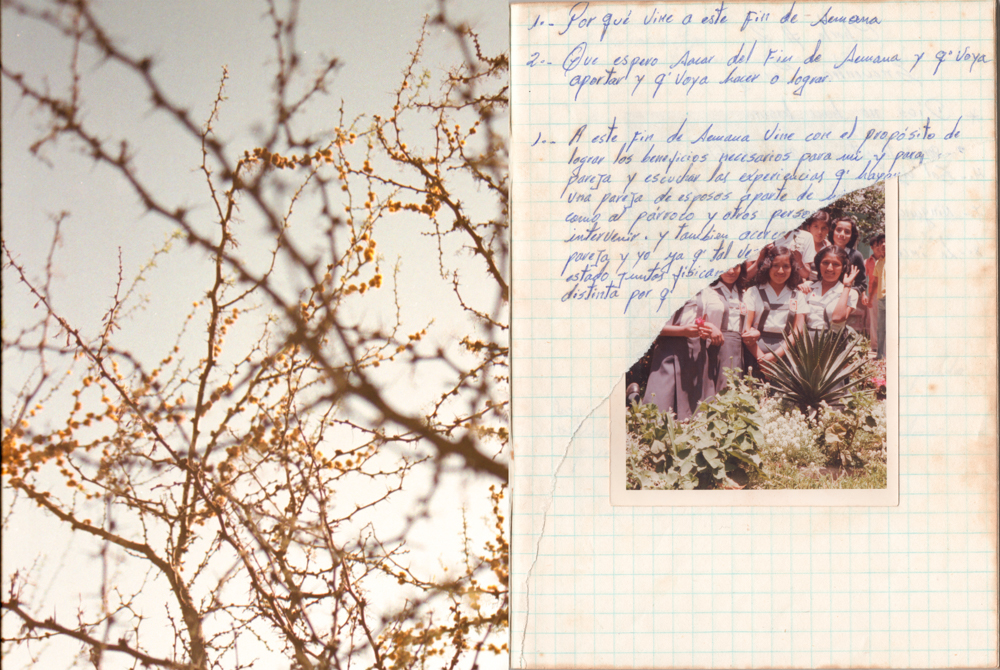 1.- Por qué vine a este Fin de Semana
2.- Que espero sacar del Fin de Semana y q' voya
aportar y q' voya hacer o lograr.
1.- A este Fin de Semana vine con el propósito de
lograr los beneficios necesarios para mi y para
pareja y escuchar las experiencias q' hayan
una pareja de esposos aparte de
como al párroco y otros perso
intervenir. y tambien acerca
pareja y yo ya q' tal ve
estado juntos fisica
distinta por q'